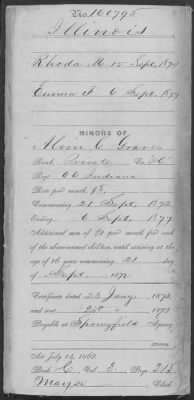 No. 160795
Illinois
Rhoda M. 15 Sept. 1874
Emma F. 6 Sept. 1877
MINORS OF
Alvin C. Graves
Rank, Private Co. "C"
Reg. 66 Indiana
Rate per month $8.
Commencing 21 Sept. 1872
Ending, 6 Sept. 1877
Additional sum of $2 per month for each
of the above-named children until arriving at the
age of 16 years commencing 21 day
of Sept. 1872
Certificate dated 23 Jany. 1873
and sent 24th " 1873
Payable at Springfield Agency
Act July 14, 1862
Book C Vol. 3 Page 212
Clerk.